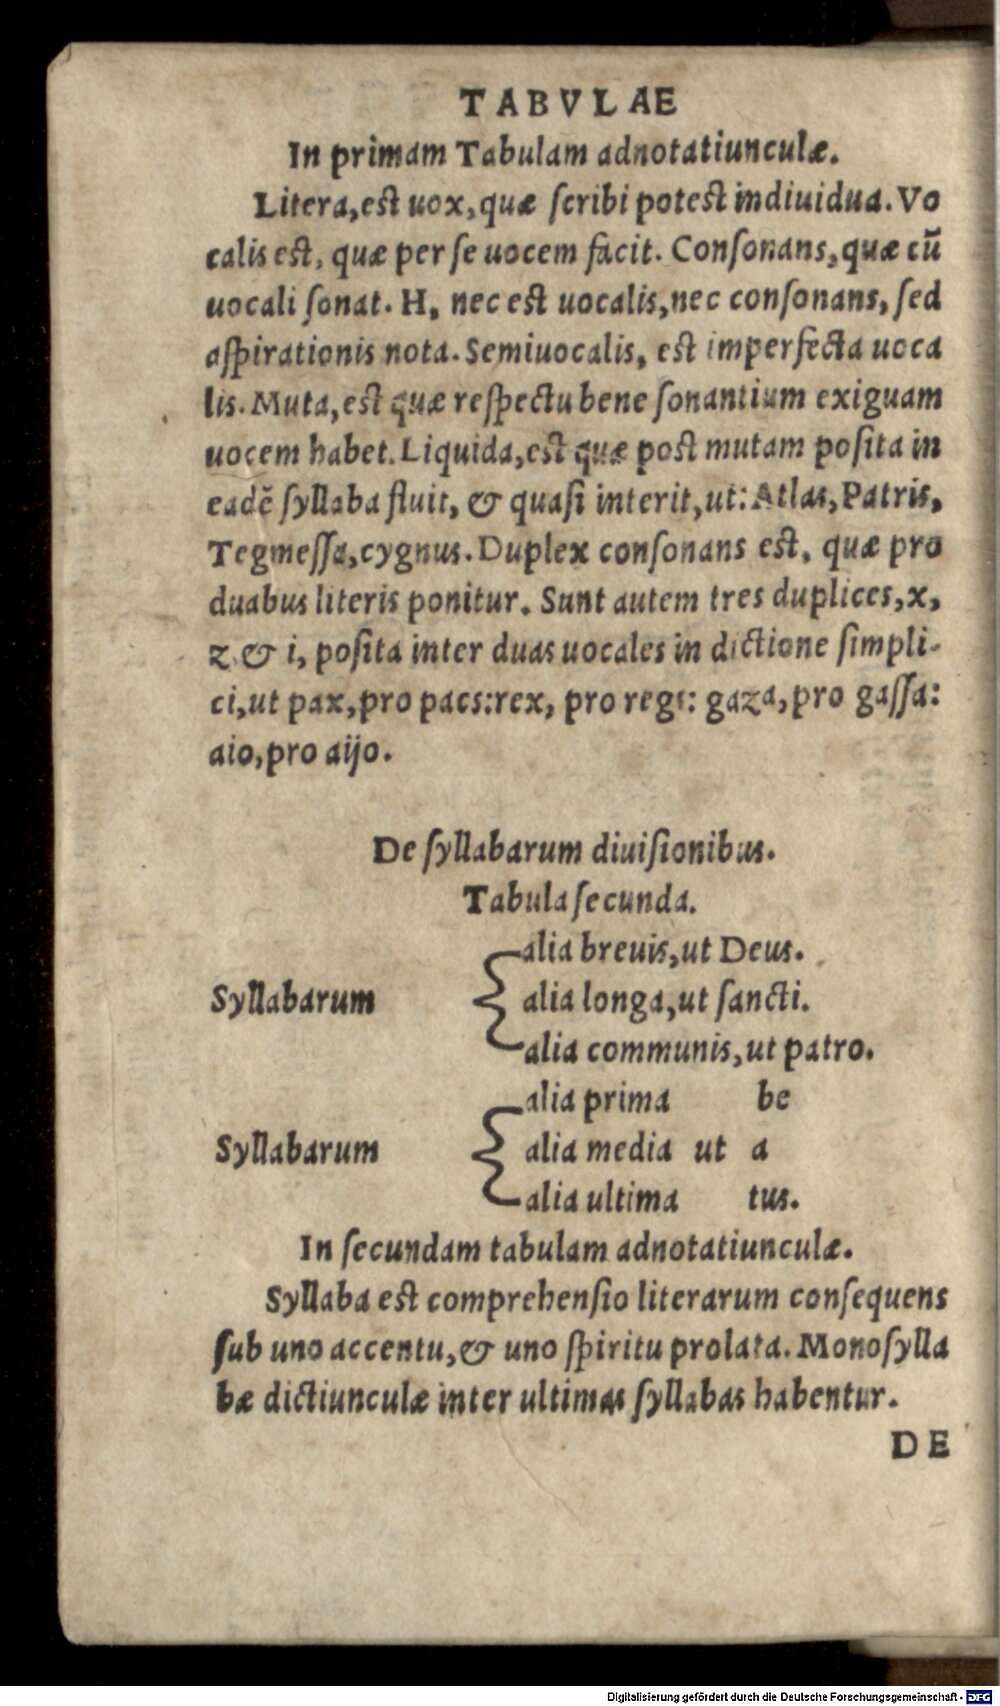 TABVLAE
In primam Tabulam adnotatiunculæ.
Litera, est uox, quæ ſcribi potest indiuidua. Vo
calis est, quæ per ſe uocem facit. Conſonans, quæ cū
uocali ſonat. H, nec est uocalis, nec conſonans, ſed
aſpirationis nota. Semiuocalis, est imperfecta uoca
lis. Muta, est quæ reſpectu bene ſonantium exiguam
uocem habet. Liquida, est quæ post mutam poſita in
eadē ſyllaba fluit, & quaſi interit, ut: Atlas, Patris,
Tegmeſſa, cygnus. Duplex conſonans est, quæ pro
duabus literis ponitur. Sunt autem tres duplices, x,
z, & i, poſita inter duas uocales in dictione ſimpli-
ci, ut pax, pro pacs: rex, pro regs: gaza, pro gaſſa:
aio, pro aijo.
De ſyllabarum diuiſionibus.
Tabula ſecunda.
alia breuis, ut Deus.
Syllabarum alia longa, ut ſancti.
alia communis, ut patro.
alia prima be
Syllabarum alia media ut a
alia ultima tus.
In ſecundam tabulam adnotatiunculæ.
Syllaba est comprehenſio literarum conſequens
ſub uno accentu, & uno ſpiritu prolata. Monoſylla
bæ dictiunculæ inter ultimas ſyllabas habentur.
DE
Digitalisierung gefördert durch die Deutsche Forschungsgemeinschaft - DFG